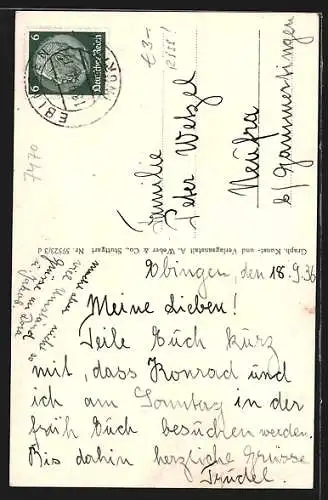 6 Deutsches Reich 6
EBINGEN
€3-
7470
Familie
Peter Wetzel
Neufra
b/Gammertingen
Graph. Kunst- und Verlagsanstalt A. Weber & Co., Stuttgart Nr. 59523/3 d
Ebingen, den 18.9.36
Meine Lieben!
Teile Euch kurz
mit, dass Konrad und
ich am Sonntag in der
früh Euch besuchen werden.
Bis dahin herzliche Grüsse
Trudel.
macht dann nicht so
viel Umstand